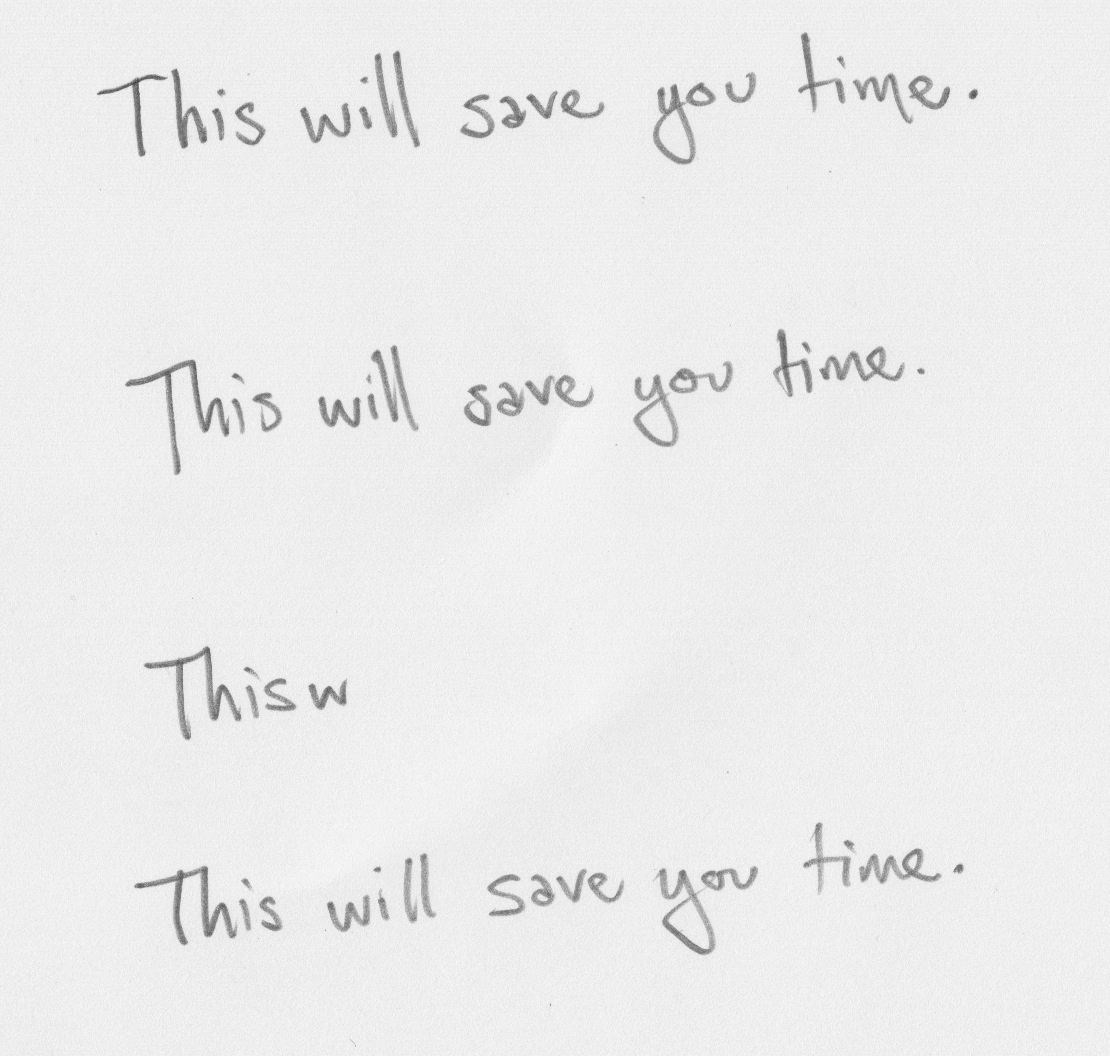 This will save you time.
This will save you time.
This w
This will save you time.